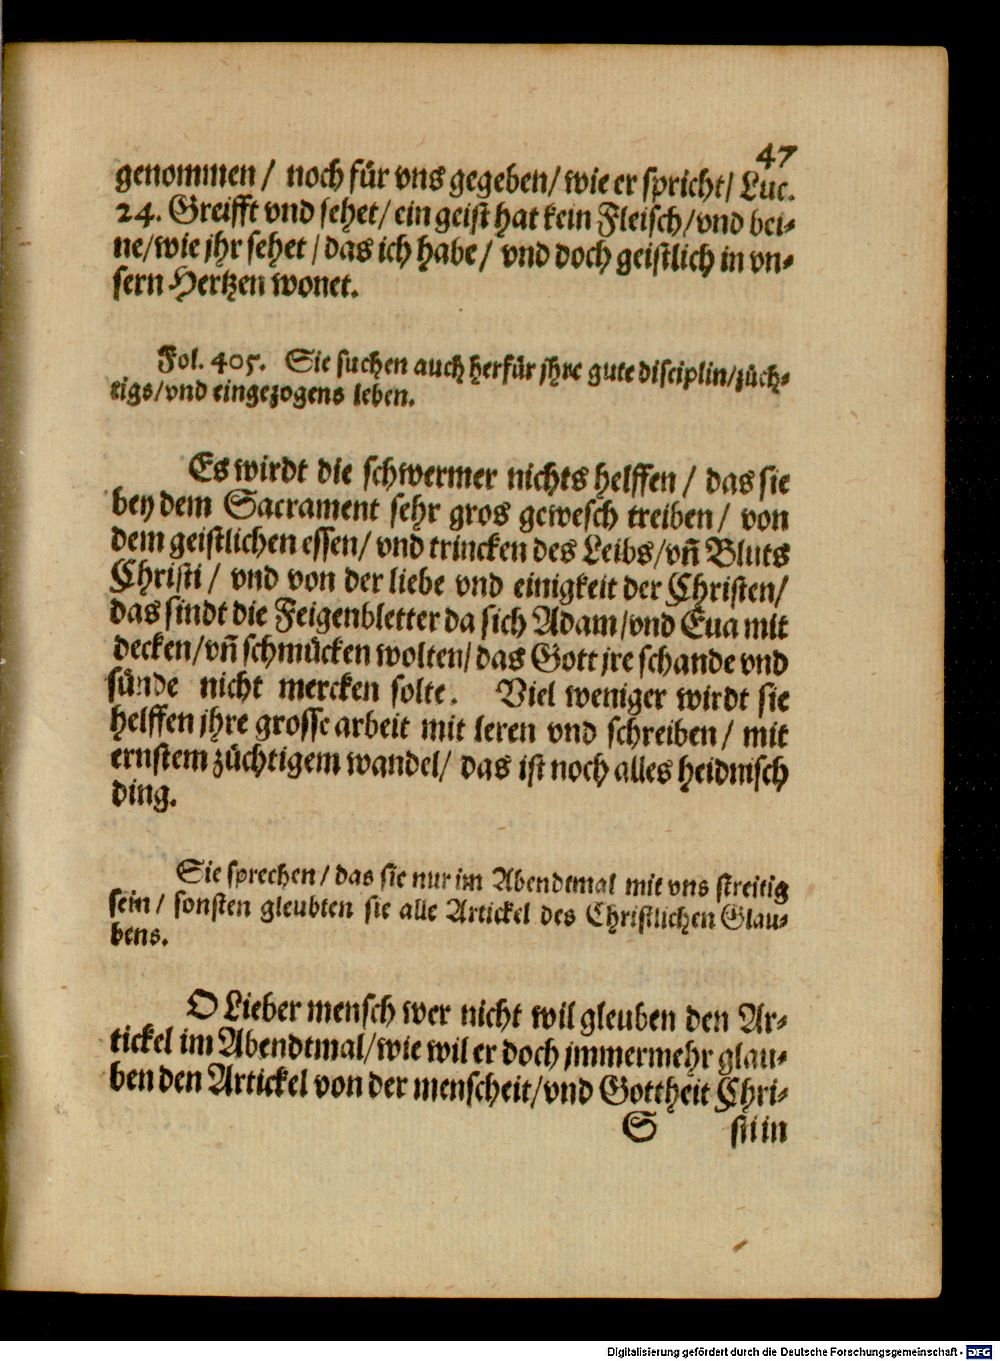 47
genommen / noch für vns gegeben/ wie er spricht/ Luc.
24. Greifft vnd sehet/ ein geist hat kein Fleisch/ vnd bei-
ne/ wie jhr sehet / das ich habe / vnd doch geistlich in vn-
sern Hertzen wonet.
Fol. 405. Sie suchen auch herfür jhre gute disciplin/ züch-
tigs/ vnd eingezogens leben.
Es wirdt die schwermer nichts helffen / das sie
bey dem Sacrament sehr gros gewesch treiben / von
dem geistlichen essen/ vnd trincken des Leibs/ vñ Bluts
Christi / vnd von der liebe vnd einigkeit der Christen/
das sindt die Feigenbletter da sich Adam/ vnd Eua mit
decken/ vñ schmücken wolten/ das Gott jre schande vnd
sünde nicht mercken solte. Viel weniger wirdt sie
helffen jhre grosse arbeit mit leren vnd schreiben / mit
ernstem züchtigem wandel/ das ist noch alles heidnisch
ding.
Sie sprechen / das sie nur im Abendtmal mit vns streitig
sein / sonsten gleubten sie alle Artickel des Christlichen Glau-
bens.
O Lieber mensch wer nicht wil gleuben den Ar-
tickel im Abendtmal/ wie wil er doch jmmermehr glau-
ben den Artickel von der menscheit/ vnd Gottheit Chri-
S sti in
Digitalisierung gefördert durch die Deutsche Forschungsgemeinschaft - DFG